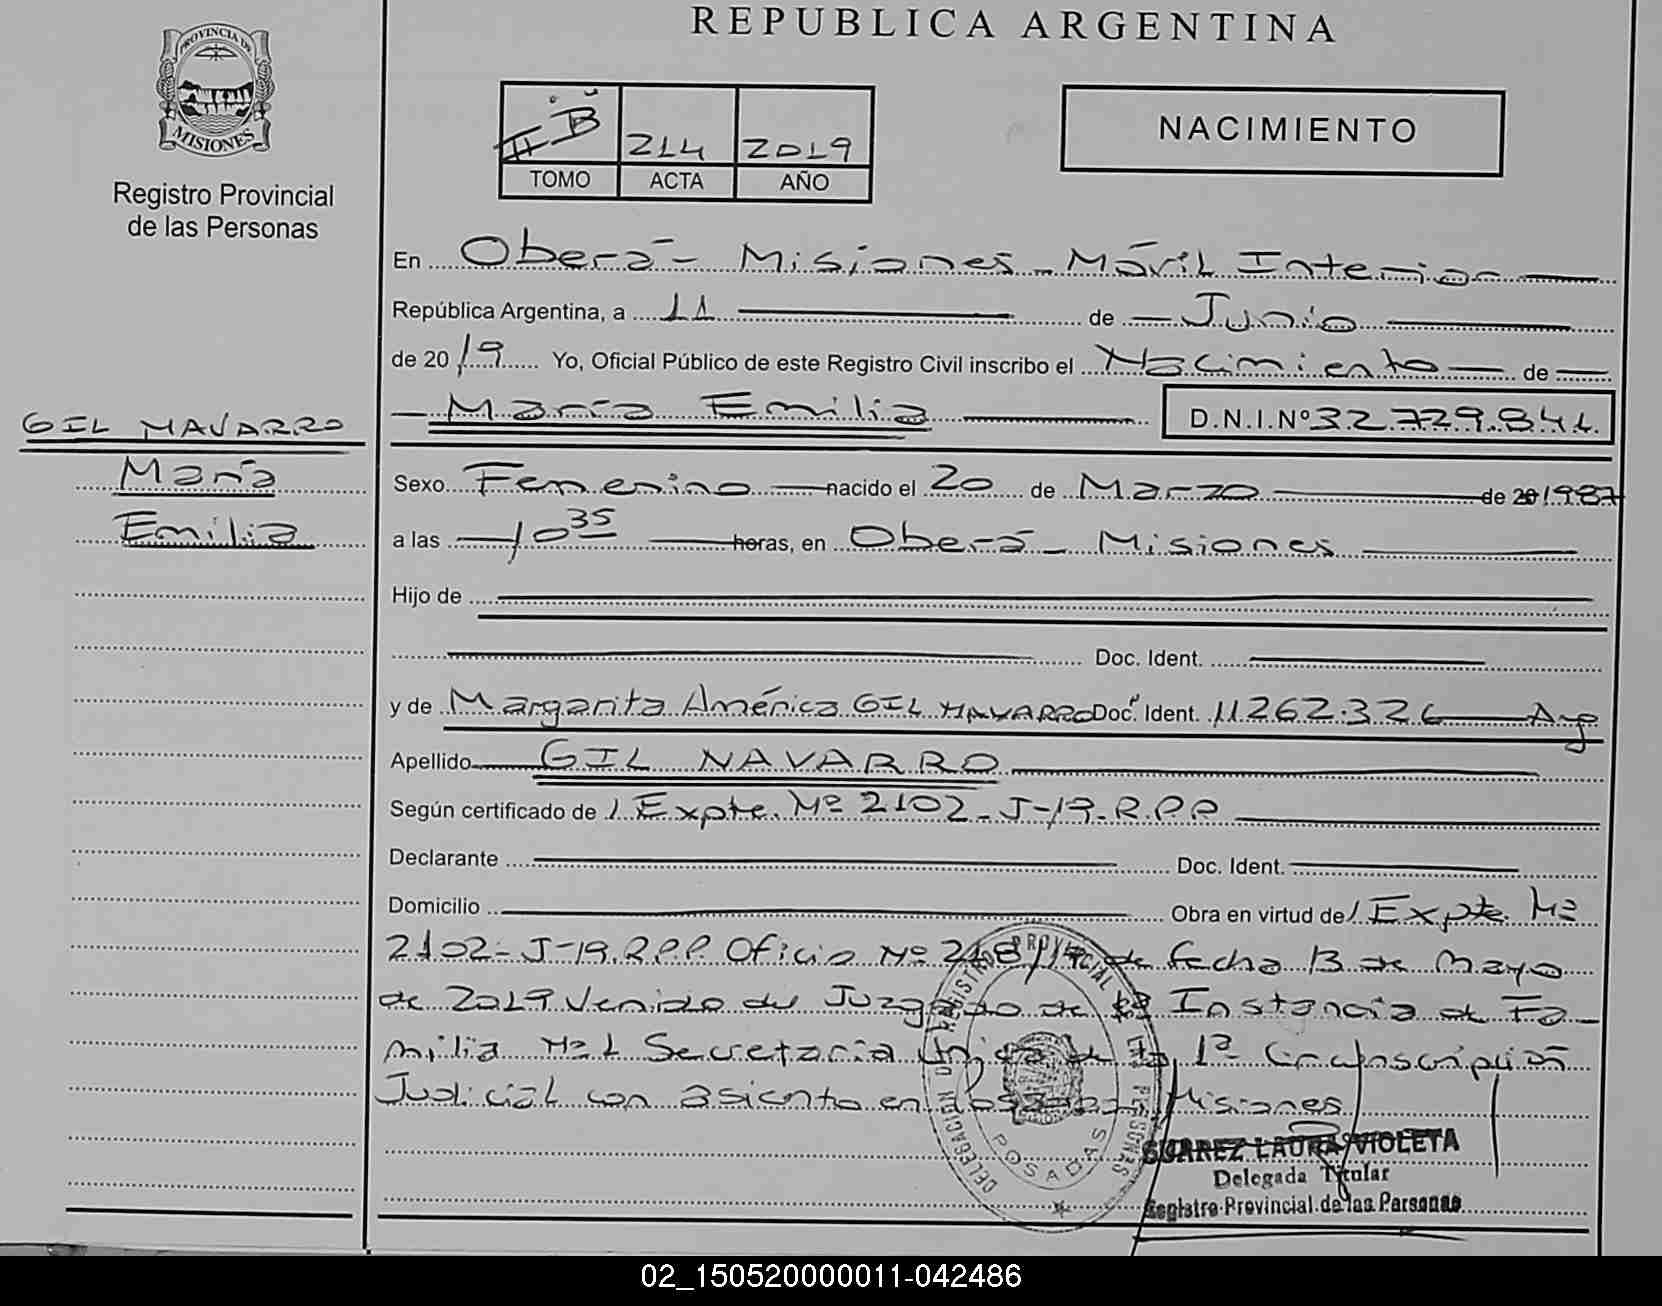 REPUBLICA ARGENTINA
PROVINCIA DE
MISIONES
Registro Provincial
de las Personas
II B 214 2019
TOMO ACTA AÑO
NACIMIENTO
En Oberá - Misiones - Móvil Interior
República Argentina, a 11 de Junio
de 2019 Yo, Oficial Público de este Registro Civil inscribo el Nacimiento de
María Emilia D.N.I.Nº 32.729.841.
GIL NAVARRO
María
Emilia
Sexo Femenino nacido el 20 de Marzo de 1987
a las 10 35 horas, en Oberá - Misiones
Hijo de
Doc. Ident.
y de Margarita América GIL NAVARRO Doc. Ident. 11.262.326 Arg
Apellido GIL NAVARRO
Según certificado de Expte. Nº 2102-J-19-R.P.P
Declarante Doc. Ident.
Domicilio Obra en virtud de Expte. Nº
2102-J-19.R.P.P. Oficio Nº de fecha 13 de Mayo
de 2019 Venido del Juzgado de Instancia de Fa-
milia Nº 1 Secretaría Única de la 1ª Circunscripción
Judicial con asiento en Posadas Misiones
DELEGACION DEL REGISTRO PROVINCIAL DE LAS PERSONAS
POSADAS
SUAREZ LAURA VIOLETA
Delegada Titular
Registro Provincial de las Personas
02_150520000011-042486